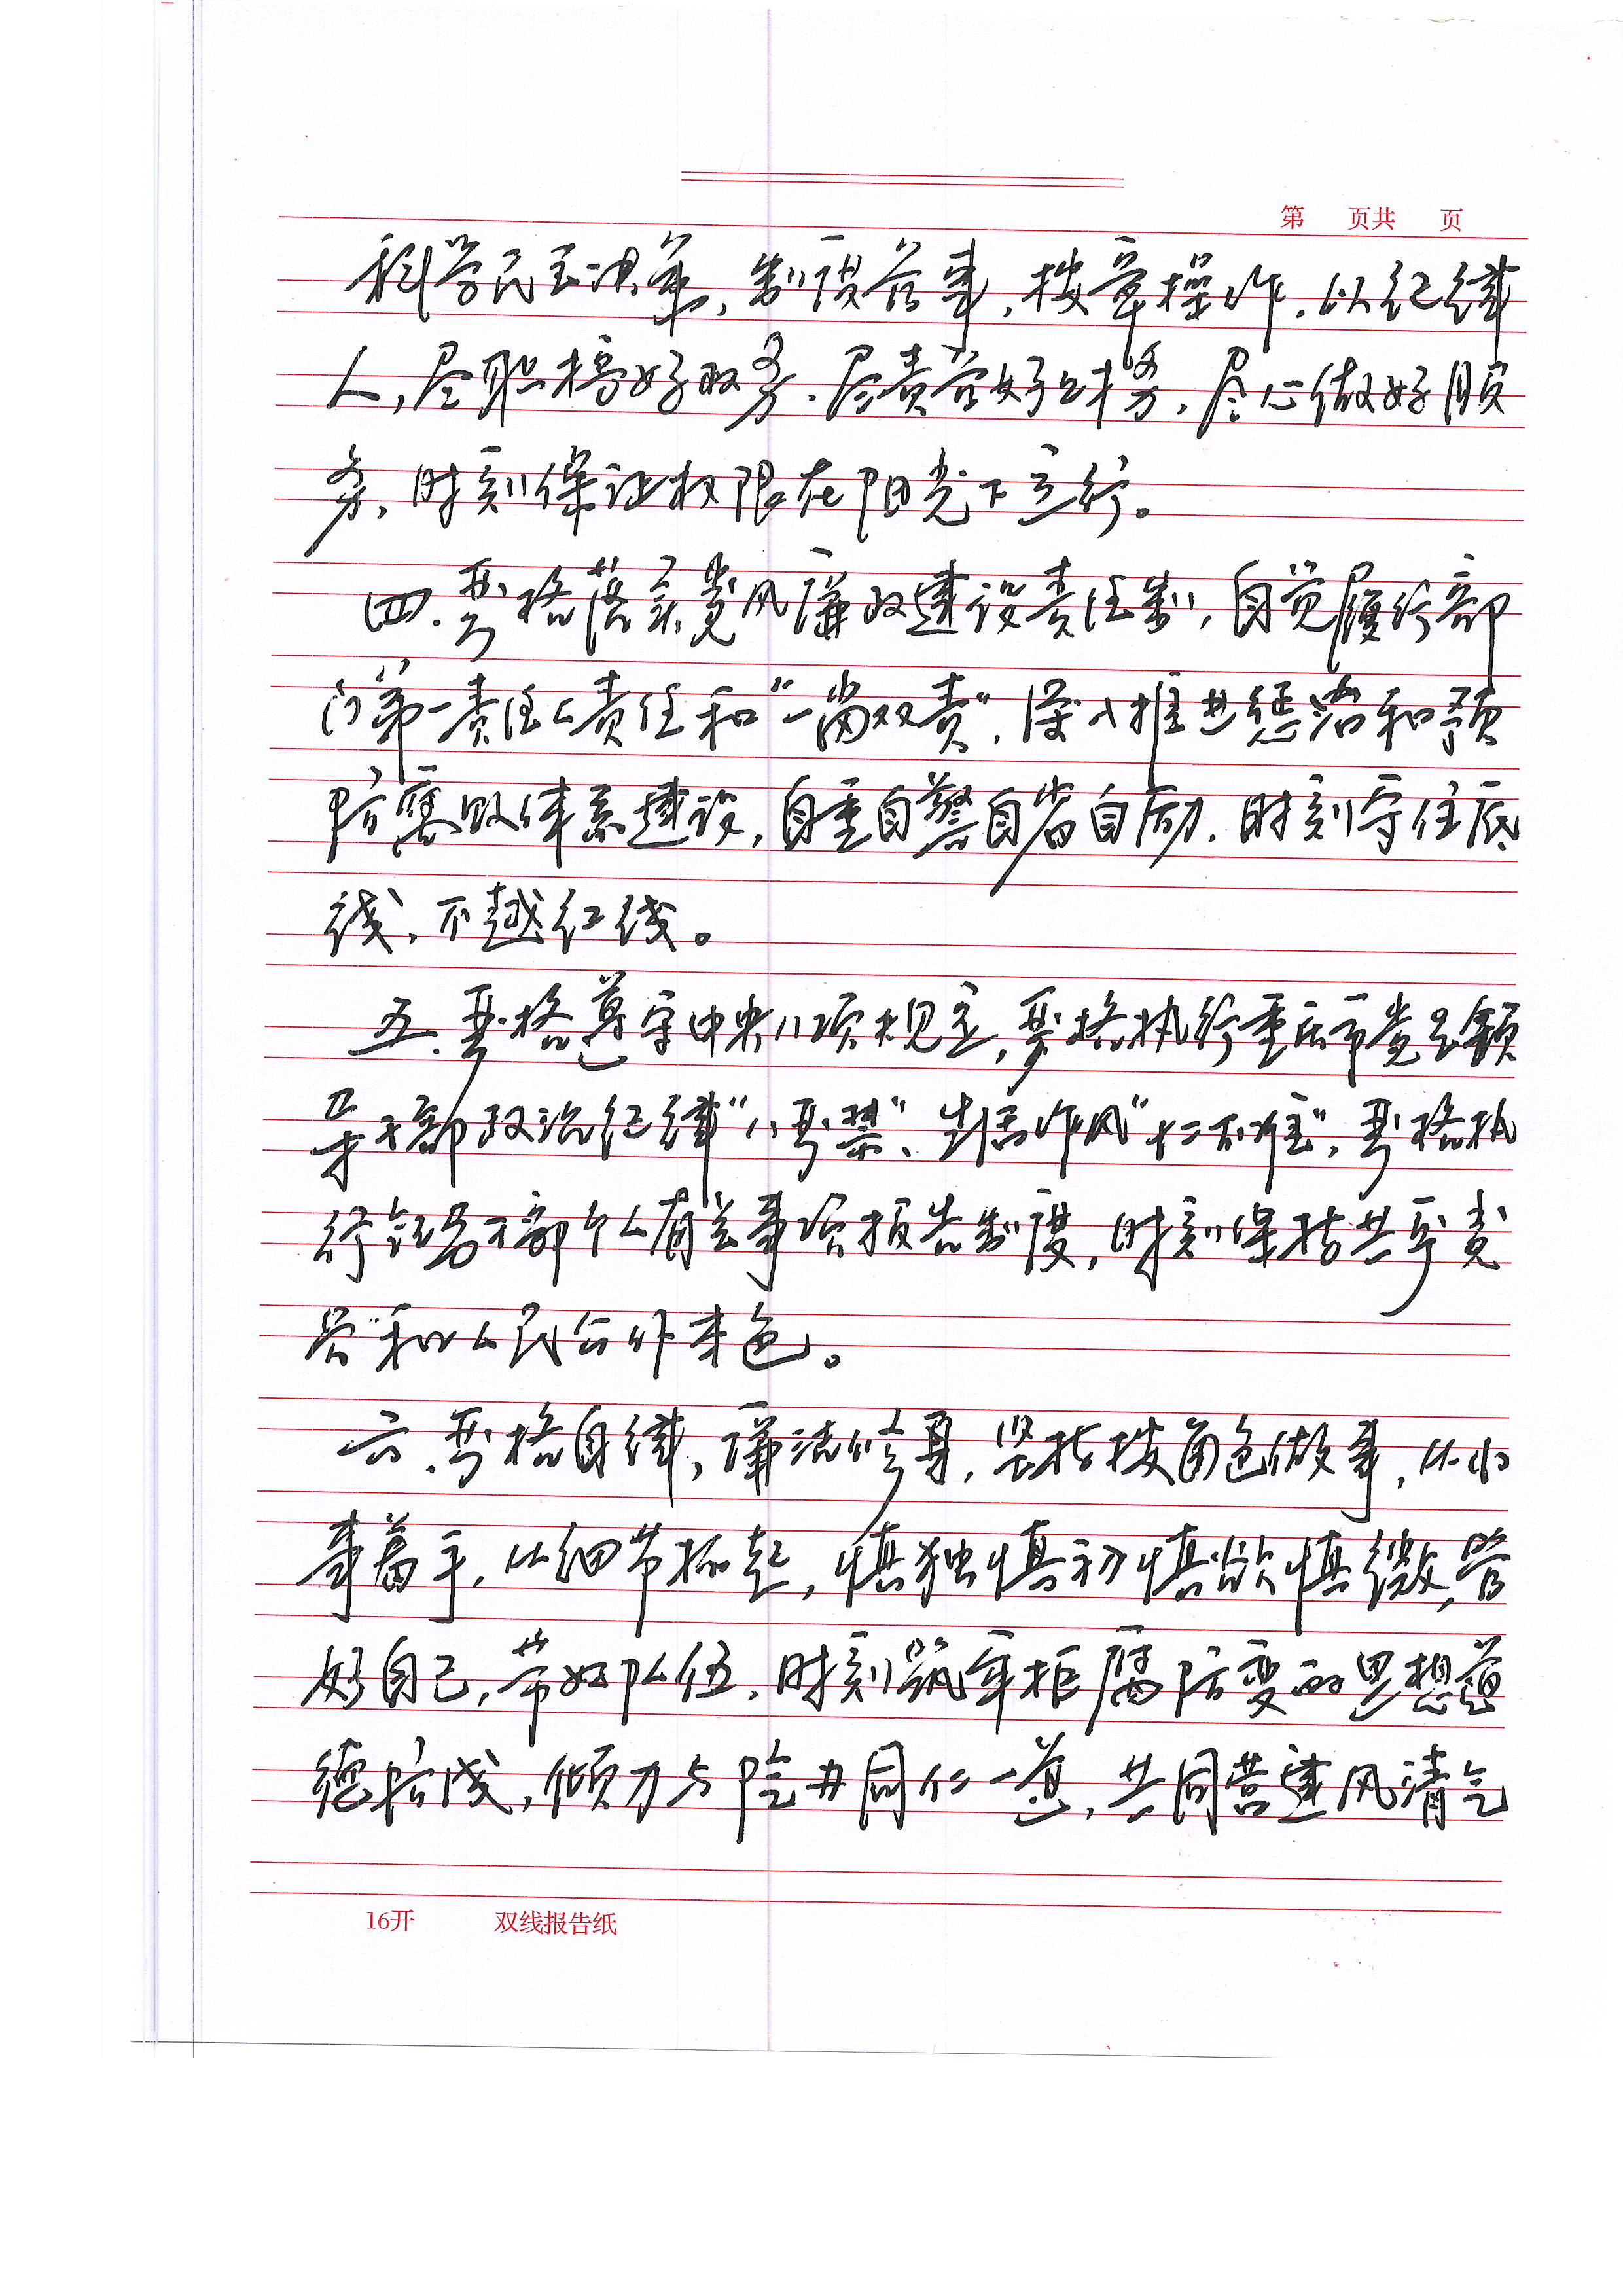 第 页共 页
科学民主决策，制度管事，按章操作，以纪律
人，尽职搞好政务，尽责管好财务，尽心做好服
务，时刻保证权限在阳光下运行。
四、严格落实党风廉政建设责任制，自觉履行部
门第一责任人责任和“一岗双责”，深入推进惩治和预
防腐败体系建设，自重自警自省自励，时刻守住底
线，不越红线。
五、严格遵守中央八项规定，严格执行重庆市党员领
导干部政治纪律“八严禁”、生活作风“十二不准”，严格执
行领导干部个人有关事项报告制度，时刻保持共产党
员和人民公仆本色。
六、严格自律，廉洁修身，坚持按角色做事，从小
事着手，从细节抓起，慎独慎初慎欲慎微，管
好自己，带好队伍，时刻筑牢拒腐防变的思想道
德防线，倾力与院办同仁一道，共同营建风清气
16开 双线报告纸